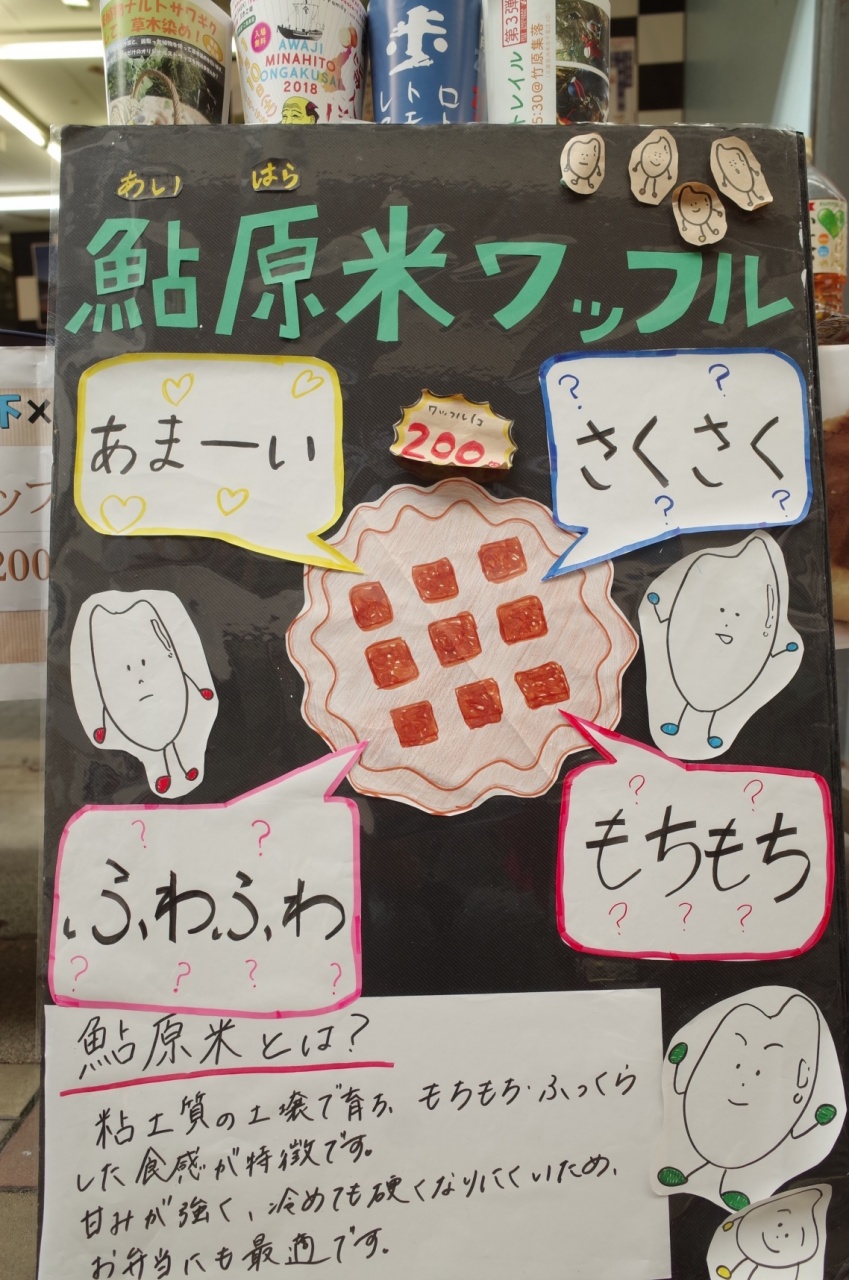 ナルトサワギク
草木染め!
入場無料
AWAJI
MINAHITO
ONGAKUSA
2018
第3弾
トレイル
5:30@竹原集落
あい はら
鮎原米ワッフル
あまーい
ワッフル1コ
200
さくさく
? ? ? ?
下×
ッフ
200
ふわふわ
? ? ? ? ? ?
もちもち
? ? ? ? ?
鮎原米とは?
粘土質の土壌で育ち、もちもち・ふっくら
した食感が特徴です。
甘みが強く、冷めても硬くなりにくいため、
お弁当にも最適です。